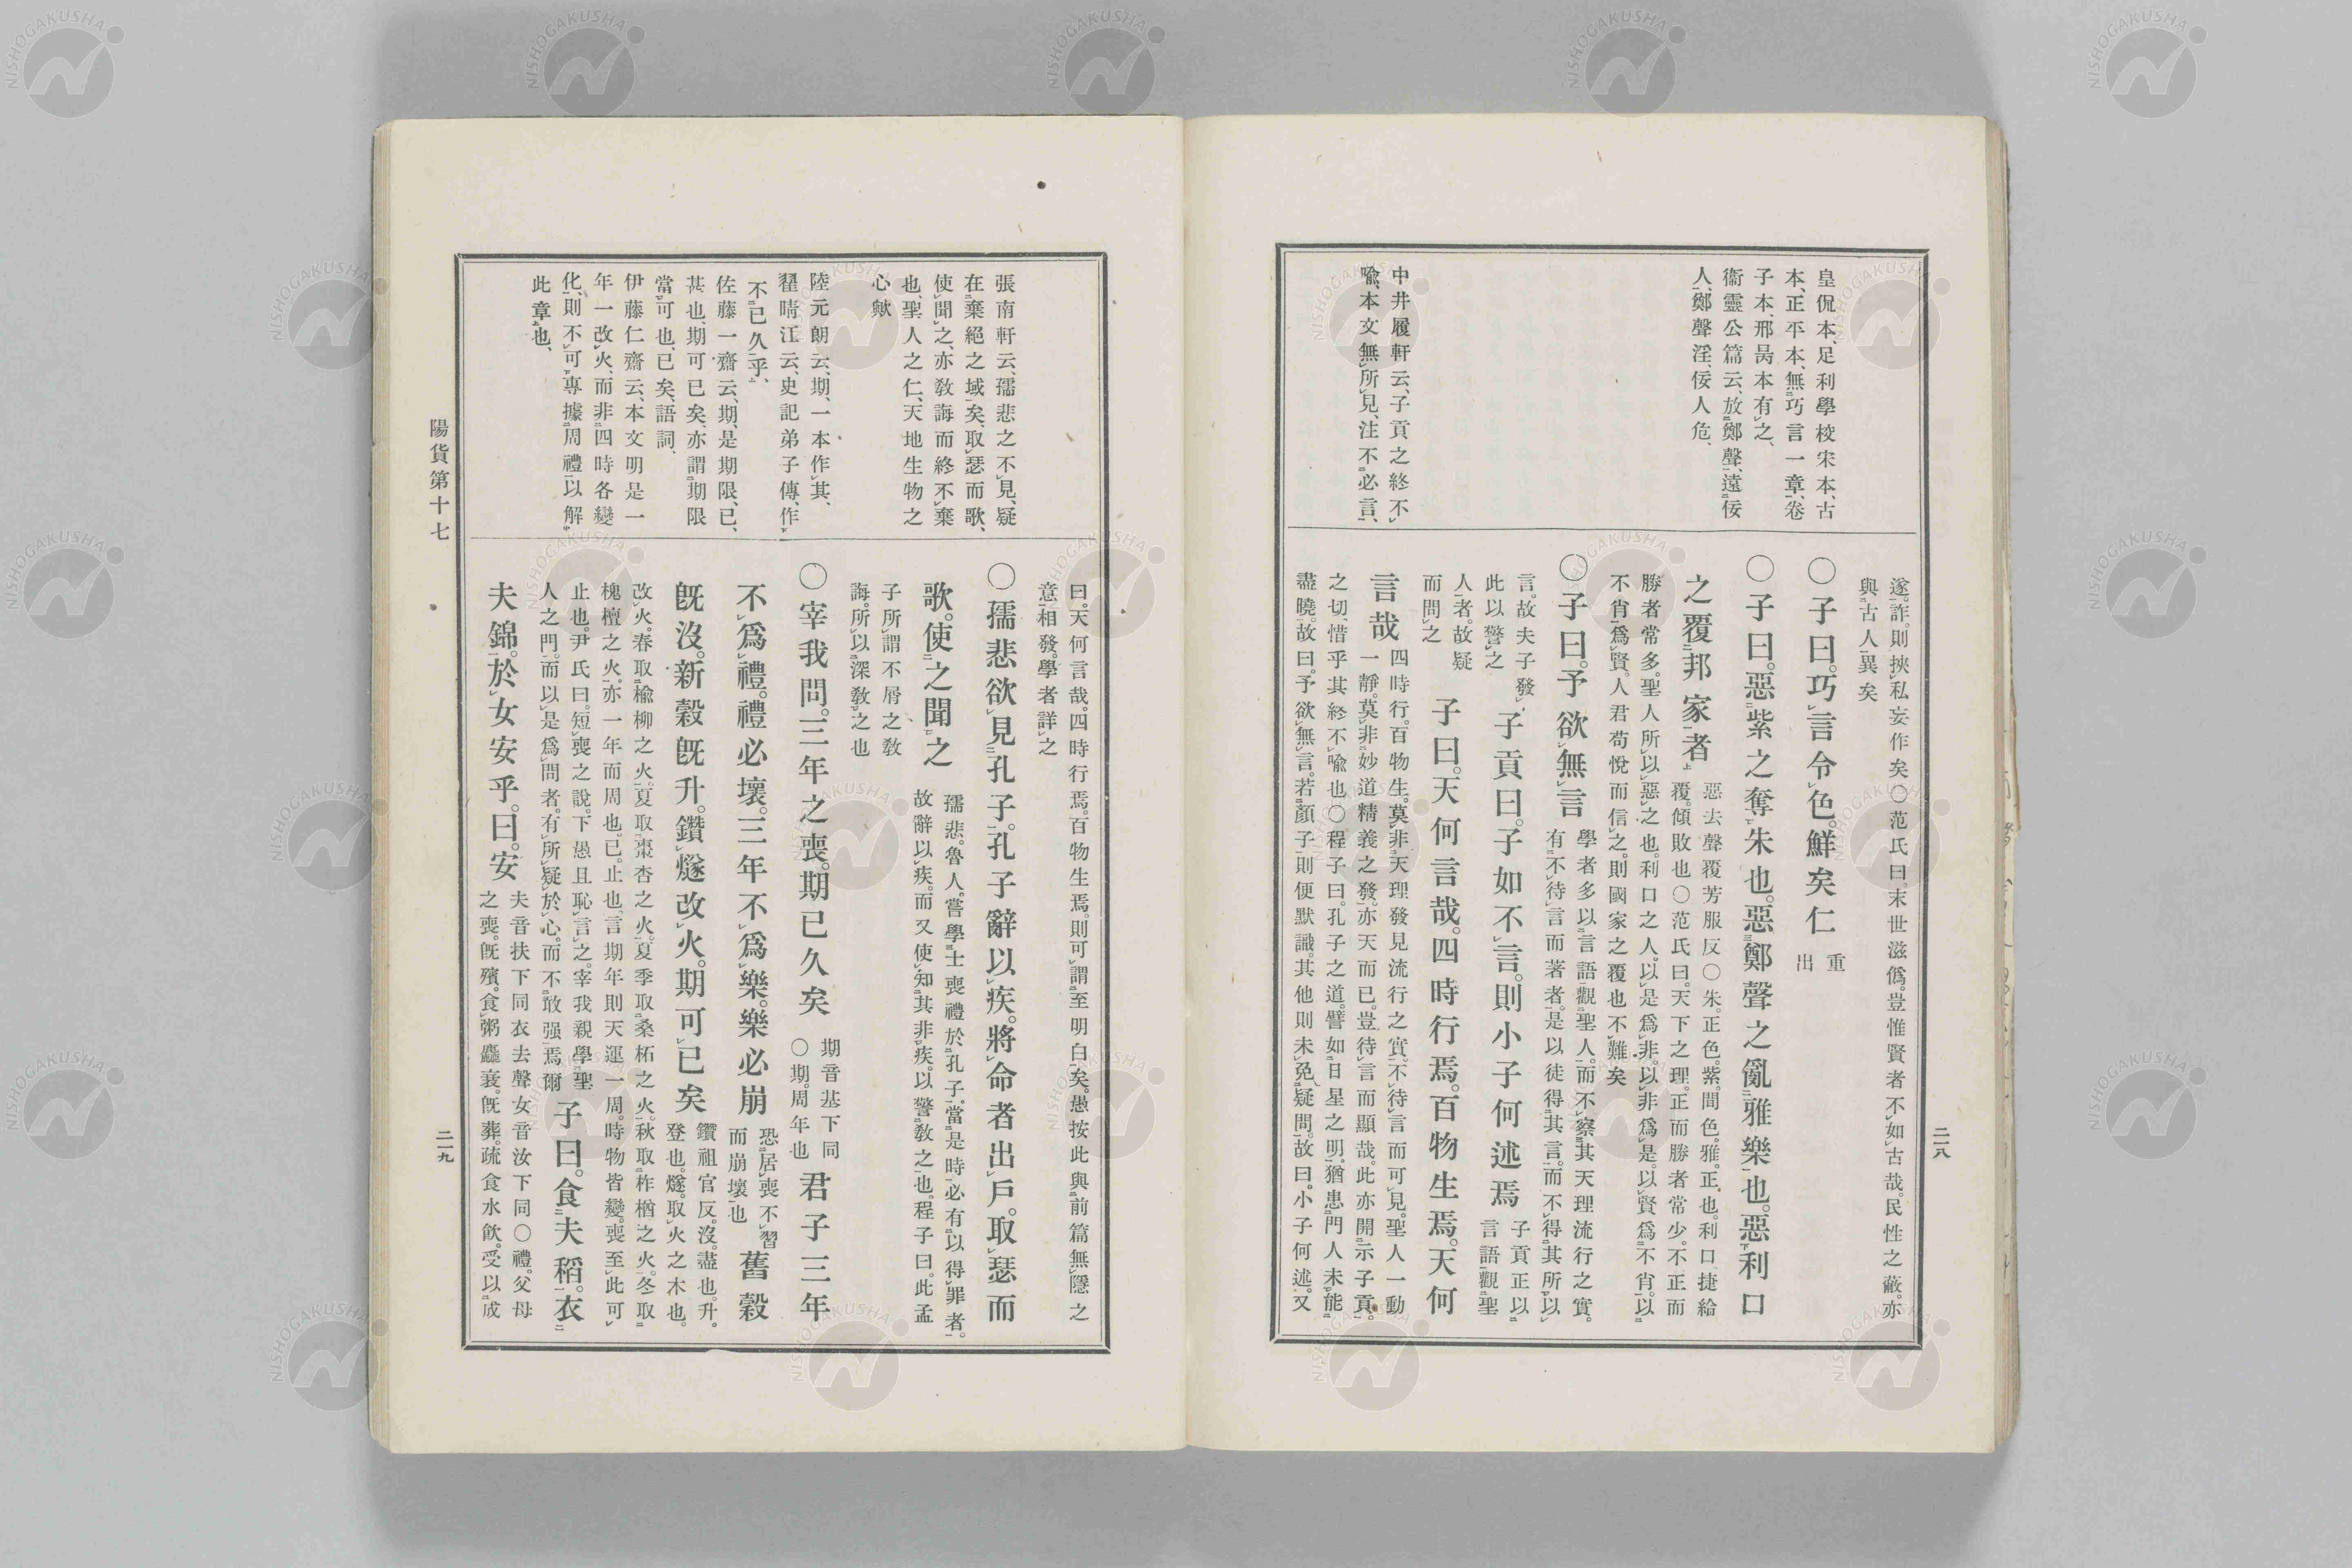 皇侃本、足利學校宋本、古
本、正平本、無巧言一章、卷
子本、邢昺本有之、
衞靈公篇云、放鄭聲、遠佞
人、鄭聲淫、佞人危、
中井履軒云、子貢之終不
喩、本文無所見、注不必言、
遂。詐。則挾私妄作矣〇范氏曰。末世滋僞。豈惟賢者不如古哉。民性之蔽。亦
與古人異矣
〇子曰。巧言令色。鮮矣仁
重
出
〇子曰。惡紫之奪朱也。惡鄭聲之亂雅樂也。惡利口
之覆邦家者
惡去聲覆芳服反〇朱。正色。紫。間色。雅。正也。利口捷給
覆。傾敗也〇范氏曰。天下之理。正而勝者常少。不正而
勝者常多。聖人所以惡之也。利口之人。以是爲非。以非爲是。以賢爲不肖。以
不肖爲賢。人君苟悅而信之。則國家之覆也不難矣
〇子曰。予欲無言
學者多以言語觀聖人。而不察其天理流行之實。
有不待言而著者。是以徒得其言。而不得其所以
言。故夫子發
此以警之
子貢曰。子如不言。則小子何述焉
子貢正以
言語觀聖
人者。故疑
而問之
子曰。天何言哉。四時行焉。百物生焉。天何
言哉
四時行。百物生。莫非天理發見流行之實。不待言而可見。聖人一動
一靜。莫非妙道精義之發。亦天而已。豈待言而顯哉。此亦開示子貢。
之切。惜乎其終不喩也〇程子曰。孔子之道。譬如日星之明。猶患門人未能
盡曉。故曰。予欲無言。若顏子則便默識。其他則未免疑問。故曰。小子何述。又
二一八
張南軒云、孺悲之不見、疑
在棄絕之域矣、取瑟而歌、
使聞之、亦敎誨而終不棄
也、聖人之仁、天地生物之
心歟
陸元朗云、期、一本作其、
翟晴江云、史記弟子傳、作
不已久乎、
佐藤一齋云、期、是期限、已、
甚也、期可已矣、亦謂期限
當可也、已矣、語詞、
伊藤仁齋云、本文明是一
年一改火、而非四時各變
化、則不可專據周禮以解
此章也、
曰。天何言哉。四時行焉。百物生焉。則可謂至明白矣。愚按此與前篇無隱之
意相發。學者詳之
〇孺悲欲見孔子。孔子辭以疾。將命者出戶。取瑟而
歌。使之聞之
孺悲。魯人。嘗學士喪禮於孔子。當是時必有以得罪者。
故辭以疾。而又使知其非疾。以警敎之也。程子曰。此孟
子所謂不屑之敎
誨。所以深敎之也
〇宰我問。三年之喪。期已久矣
期音基下同
〇期。周年也
君子三年
不爲禮。禮必壞。三年不爲樂。樂必崩
恐居喪不習
而崩壞也
舊穀
旣沒。新穀旣升。鑽燧改火。期可已矣
鑽祖官反。沒。盡也。升。
登也。燧。取火之木也。
改火。春取楡柳之火。夏取棗杏之火。夏季取桑柘之火。秋取柞楢之火。冬取
槐檀之火。亦一年而周也。已。止也。言期年則天運一周。時物皆變。喪至此可
止也。尹氏曰。短喪之說。下愚且恥言之。宰我親學聖
人之門。而以是爲問者。有所疑於心。而不敢强焉爾
子曰。食夫稻。衣
夫錦。於女安乎。曰。安
夫音扶下同衣去聲女音汝下同〇禮。父母
之喪。旣殯。食粥麤衰。旣葬。疏食水飮。受以成
陽貨第十七
二一九
NISHOGAKUSHA